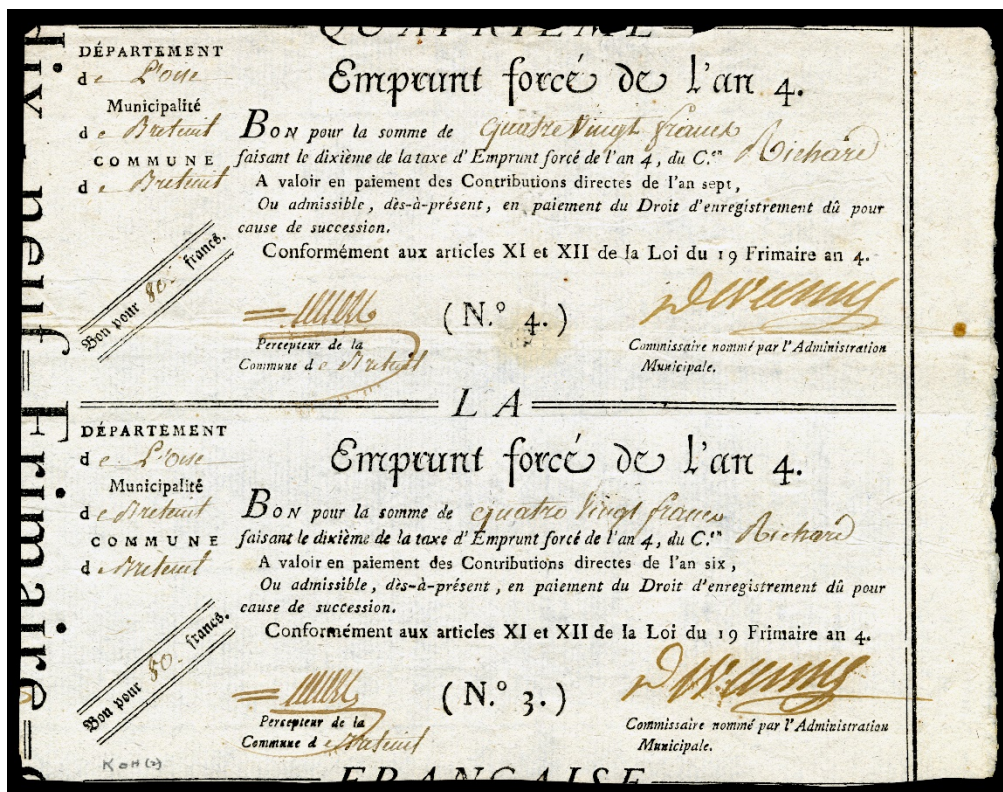 QUATRIÈME
DÉPARTEMENT
de L'Oise
Municipalité
de Breteuil
COMMUNE
de Breteuil
Bon pour 80 - francs.
Emprunt forcé de l'an 4.
BON pour la somme de quatre Vingt francs
faisant le dixième de la taxe d'Emprunt forcé de l'an 4, du C.en Richard
A valoir en paiement des Contributions directes de l'an sept,
Ou admissible, dès-à-présent, en paiement du Droit d'enregistrement dû pour
cause de succession.
Conformément aux articles XI et XII de la Loi du 19 Frimaire an 4.
(N.° 4.)
Percepteur de la
Commune de Breteuil
Commissaire nommé par l'Administration
Municipale.
LA
DÉPARTEMENT
de L'Oise
Municipalité
de Breteuil
COMMUNE
de Breteuil
Bon pour 80 - francs.
Emprunt forcé de l'an 4.
BON pour la somme de quatre Vingt francs
faisant le dixième de la taxe d'Emprunt forcé de l'an 4, du C.en Richard
A valoir en paiement des Contributions directes de l'an six,
Ou admissible, dès-à-présent, en paiement du Droit d'enregistrement dû pour
cause de succession.
Conformément aux articles XI et XII de la Loi du 19 Frimaire an 4.
(N.° 3.)
Percepteur de la
Commune de Breteuil
Commissaire nommé par l'Administration
Municipale.
FRANÇAISE
dix-neuf Frimaire